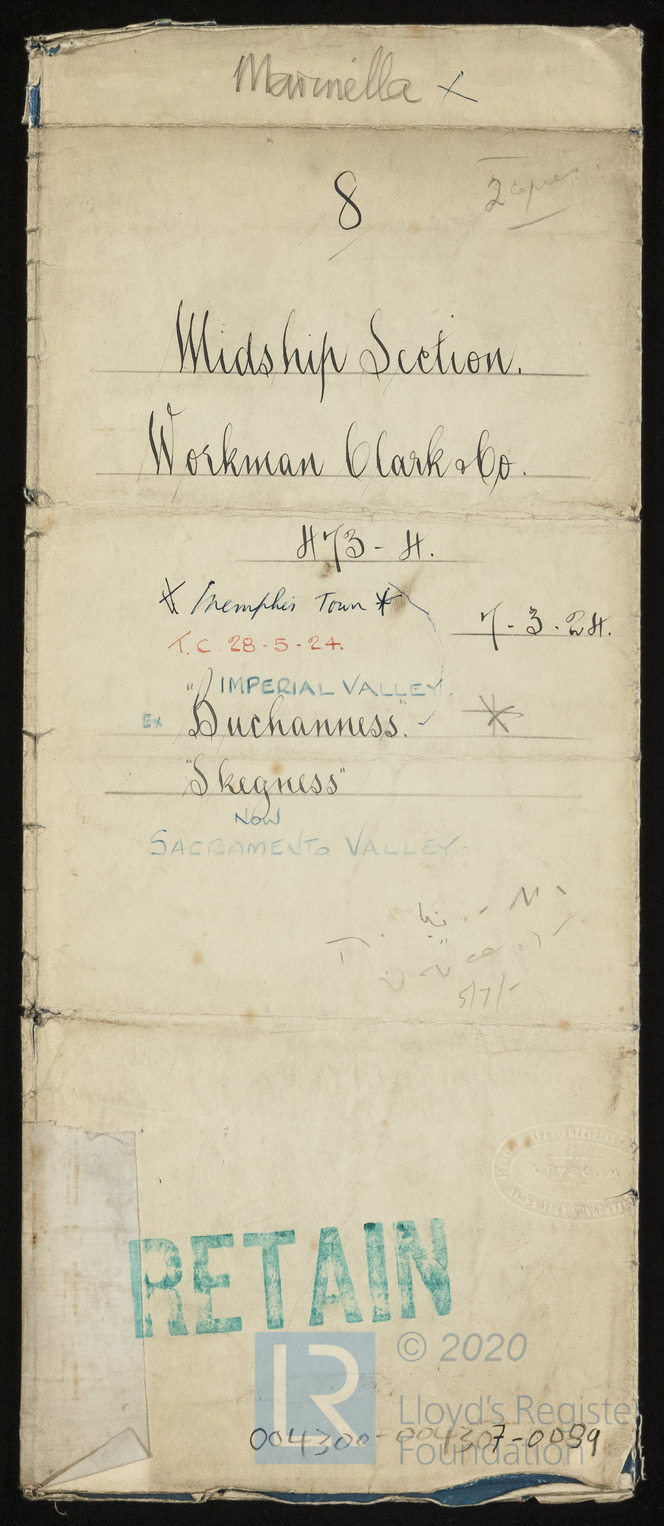 Marinella x
8
2 copies
Midship Section.
Workman Clark & Co.
473-4.
Memphis Town
7-3-24.
T.C. 28-5-24.
IMPERIAL VALLEY.
Ex "Buchanness".
"Skegness"
Now
SACRAMENTO VALLEY.
5/7/-
RETAIN
LR
© 2020
Lloyd's Registe
Foundation
004300-004307-0039